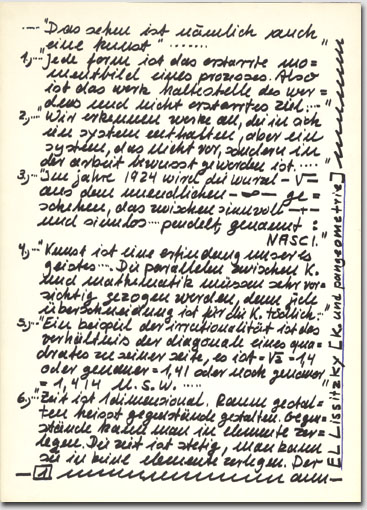 ---- "Das sehen ist nämlich auch
eine kunst" .......
1,--"Jede form ist das erstarrte mo=
mentbild eines prozesses. Also
ist das werk haltestelle des wer=
dens und nicht erstarrtes ziel....."
2,--"Wir erkennen werke an, die in sich
ein system enthalten, aber ein
system, das nicht vor, sondern in
der arbeit bewusst geworden ist....."
3,--"Im jahre 1924 wird die wurzel -√-
aus dem unendlichen -∞- ge=
schehen, das zwischen sinnvoll -+-
und sinnlos ---- pendelt, genannt:
NASCI."
4,--"Kunst ist eine erfindung unseres
geistes.... Die parallelen zwischen K.
und mathematik müssen sehr vor=
sichtig gezogen werden, denn jede
überschneidung ist für die K. tödlich..."
5,--"Ein beispiel der irrationalität ist das
verhältnis der diagonale eines qua=
drates zu seiner seite, es ist =√2=1,4
oder genauer =1,41 oder noch genauer
=1,414 U.S.W. ....."
6,--"Zeit ist 1 dimensional. Raum gestal=
ten heisst gegenstände gestalten. Gegen=
stände kann man in elemente zer=
legen. Die zeit ist stetig, man kann
sie in keine elemente zerlegen. Der
1
EL Lissitzky [K. und pangeometrie]